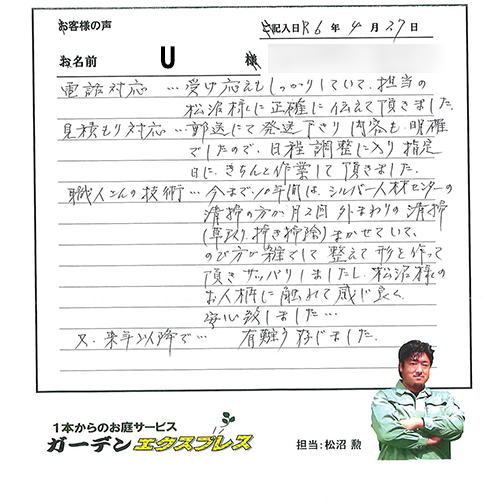 お客様の声
ご記入日 R6年4月27日
お名前 U 様
電話対応…受け応えもしっかりしていて、担当の
松沼様に正確に伝えて頂きました。
見積もり対応…郵送にて発送下さり内容も明確
でしたので、日程調整に入り指定
日に、きちんと作業して頂きました。
職人さんの技術…今まで10年間は、シルバー人材センターの
清掃の方が月2回外まわりの清掃
(草取り、掃き掃除)まかせていて、
ので方が雑でして 整えて形を作って
頂きサッパリしましたし、松沼様の
お人柄に触れて感じ良く、
安心致しました…
又、来年以降で… 有難う存じました。
1本からのお庭サービス
ガーデンエクスプレス
担当:松沼 勲